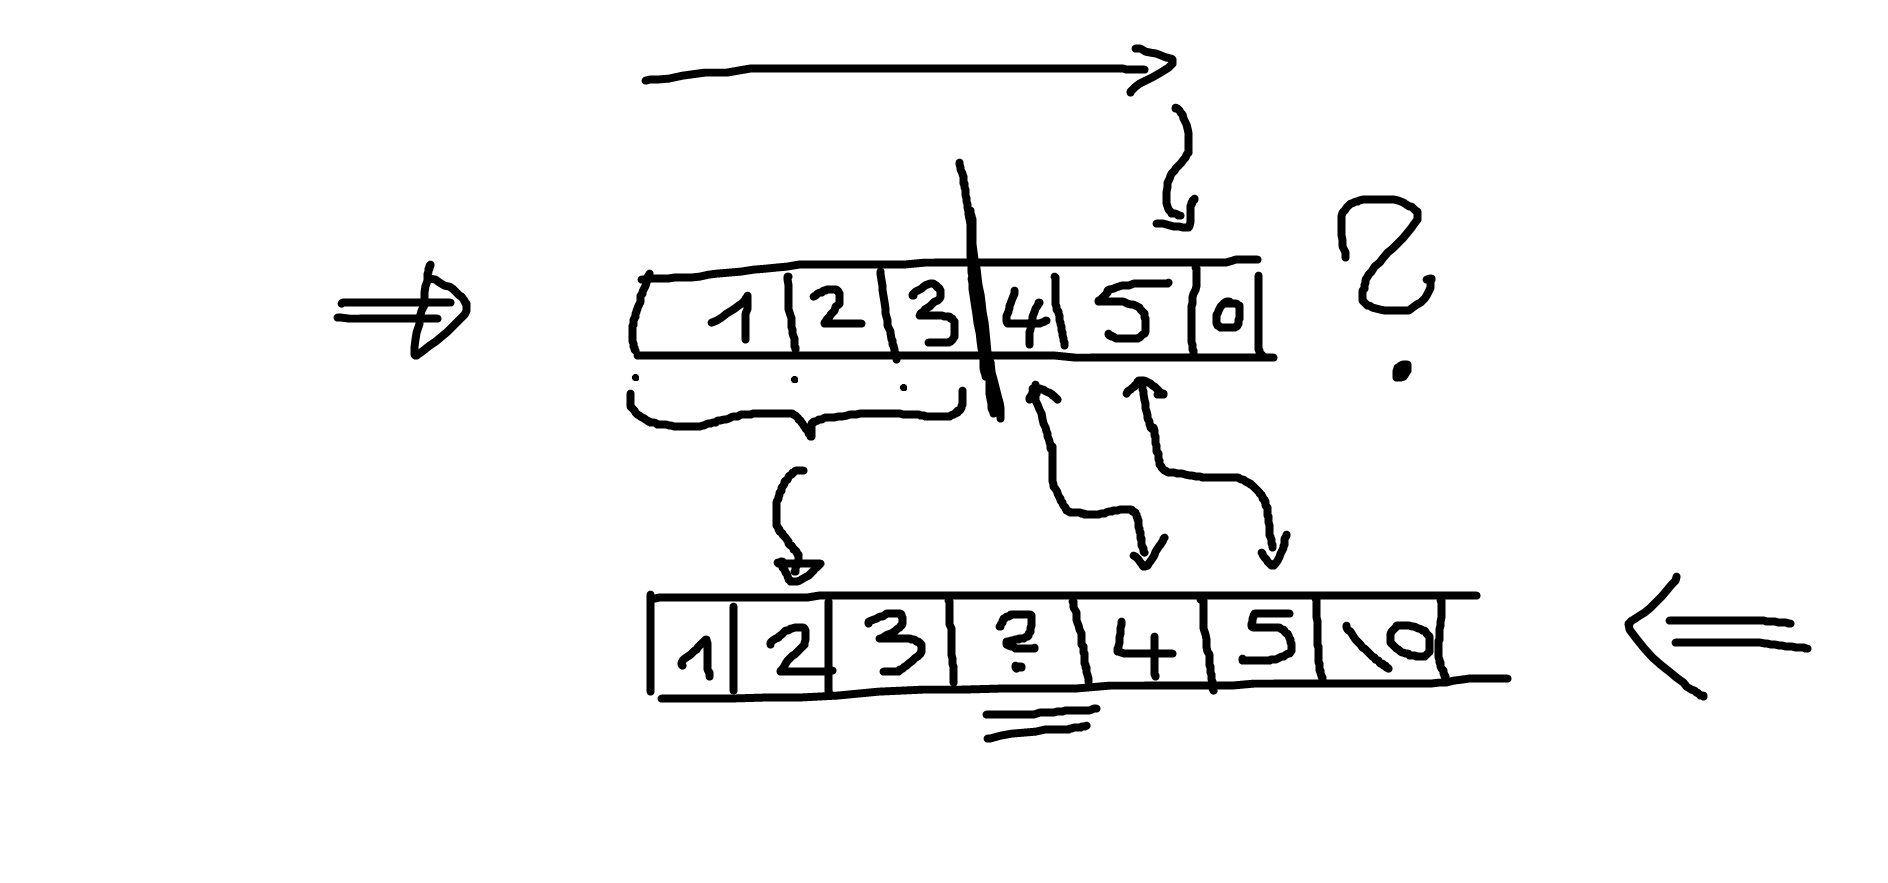 1 2 3 4 5 0 ?
1 2 3 ? 4 5 \0